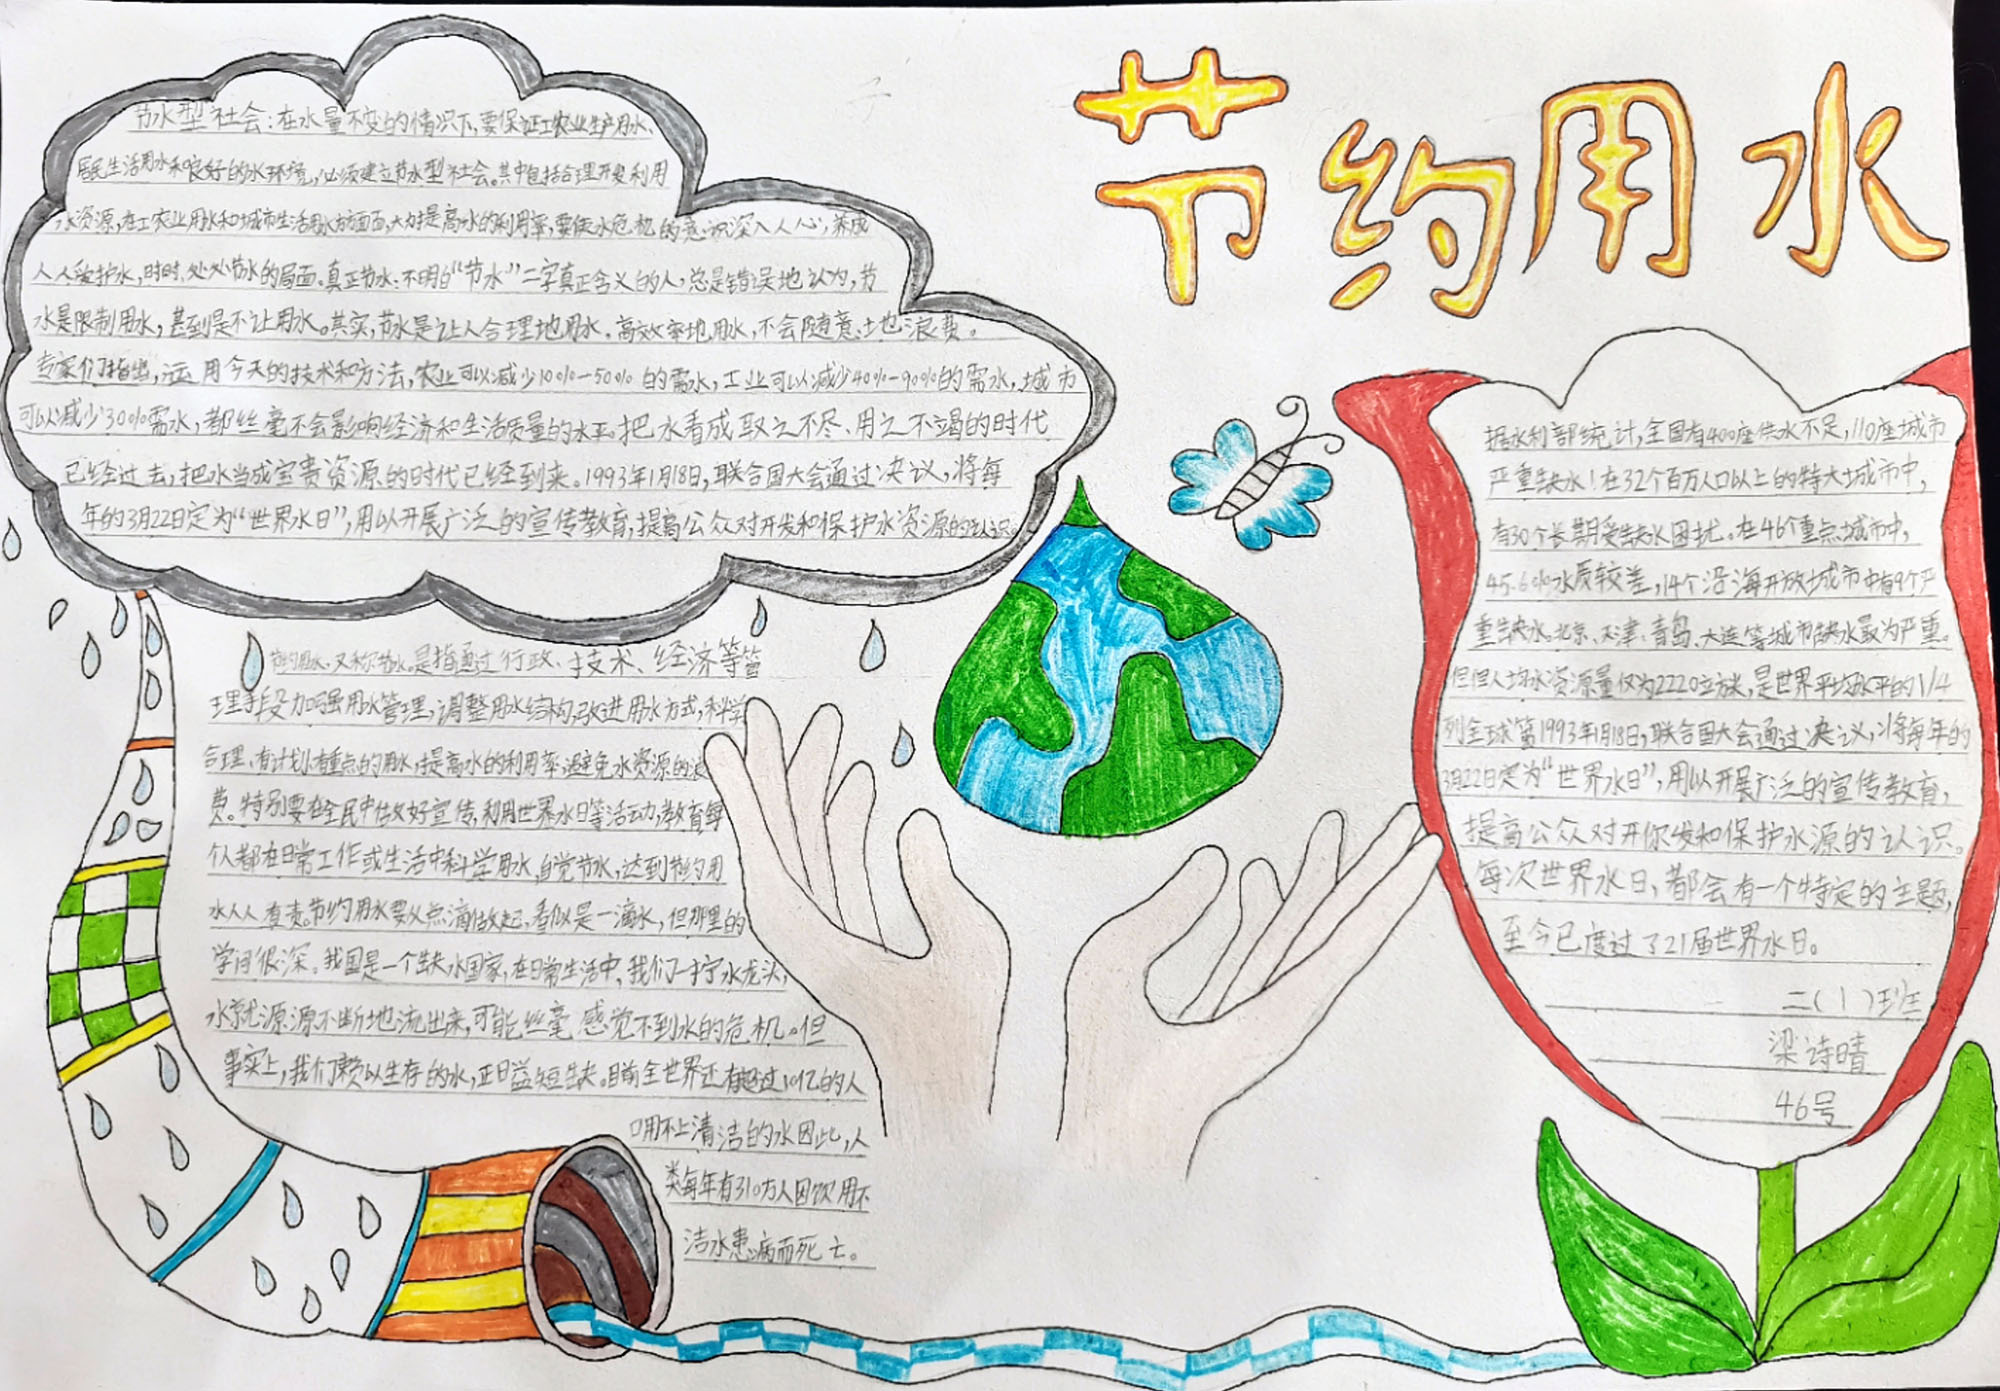 节约用水
节水型社会:在水量不变的情况下,要保证工农业生产用水、
居民生活用水和良好的水环境,必须建立节水型社会。其中包括合理开发利用
水资源,在工农业用水和城市生活用水方面,大力提高水的利用率,要使水危机的意识深入人心,养成
人人爱护水,时时、处处节水的局面。真正节水:不明白“节水”二字真正含义的人,总是错误地认为,节
水是限制用水,甚到是不让用水。其实,节水是让人合理地用水,高效率地用水,不会随意地浪费。
专家们指出,运用今天的技术和方法,农业可以减少10%—50%的需水,工业可以减少40%-90%的需水,城市
可以减少30%需水,都丝毫不会影响经济和生活质量的水平。把水看成取之不尽、用之不竭的时代
已经过去,把水当成宝贵资源的时代已经到来。1993年1月18日,联合国大会通过决议,将每
年的3月22日定为“世界水日”,用以开展广泛的宣传教育,提高公众对开发和保护水资源的认识。
节约用水,又称节水,是指通过行政、技术、经济等管
理手段加强用水管理,调整用水结构,改进用水方式,科学
合理、有计划、有重点的用水,提高水的利用率,避免水资源的浪
费。特别要在全民中做好宣传,利用世界水日等活动,教育每
个人都在日常工作或生活中科学用水,自觉节水,达到节约用
水人人有责。节约用水要从点滴做起,看似是一滴水,但那里的
学问很深。我国是一个缺水国家,在日常生活中,我们一拧水龙头,
水就源源不断地流出来,可能丝毫感觉不到水的危机。但
事实上,我们赖以生存的水,正日益短缺。目前全世界还有超过10亿的人
口用不上清洁的水因此,人
类每年有310万人因饮用不
洁水患病而死亡。
据水利部统计,全国有400座供水不足,110座城市
严重缺水!在32个百万人口以上的特大城市中,
有30个长期受缺水困扰。在46个重点城市中,
45.6%水质较差,14个沿海开放城市中有9个严
重缺水。北京、天津、青岛、大连等城市缺水最为严重。
但但人均水资源量仅为2220立方米,是世界平均水平的1/4
列全球第1993年1月18日,联合国大会通过决议,将每年的
3月22日定为“世界水日”,用以开展广泛的宣传教育,
提高公众对开你发和保护水源的认识。
每次世界水日,都会有一个特定的主题,
至今已度过了21届世界水日。
二(1)班
梁诗晴
46号